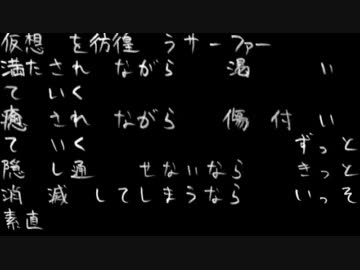 仮想 を彷徨 うサーファー
満たされ ながら 渇 い
ていく
癒 されながら 傷 付 い
ていく ずっと
隠 し通 せないなら きっと
消 滅 してしまうなら いっそ
素直